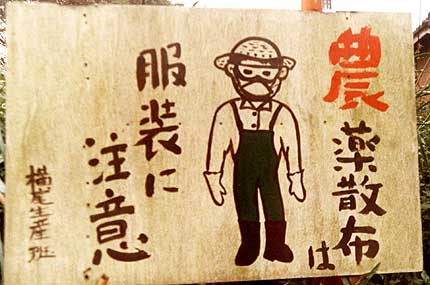 農薬散布は
服装に
注意
横尾生産班